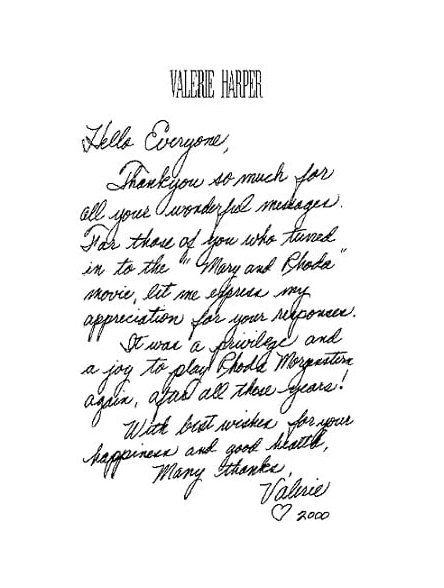 VALERIE HARPER
Hello Everyone,
Thankyou so much for
all your wonderful messages.
For those of you who tuned
in to the "Mary and Rhoda"
movie, let me express my
appreciation for your responses.
It was a privilege and
a joy to play Rhoda Morgenstern
again, after all these years!
With best wishes for your
happiness and good health,
Many thanks,
Valerie
♡ 2000